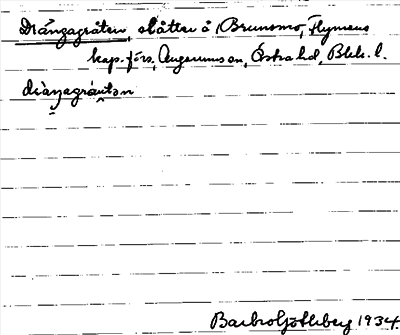 Drängagråten, slåtter å Brunsmo, Flymens
kap.förs, Augerums sn, Östra hd, Blek. l.
Barbro Götheberg 1934.